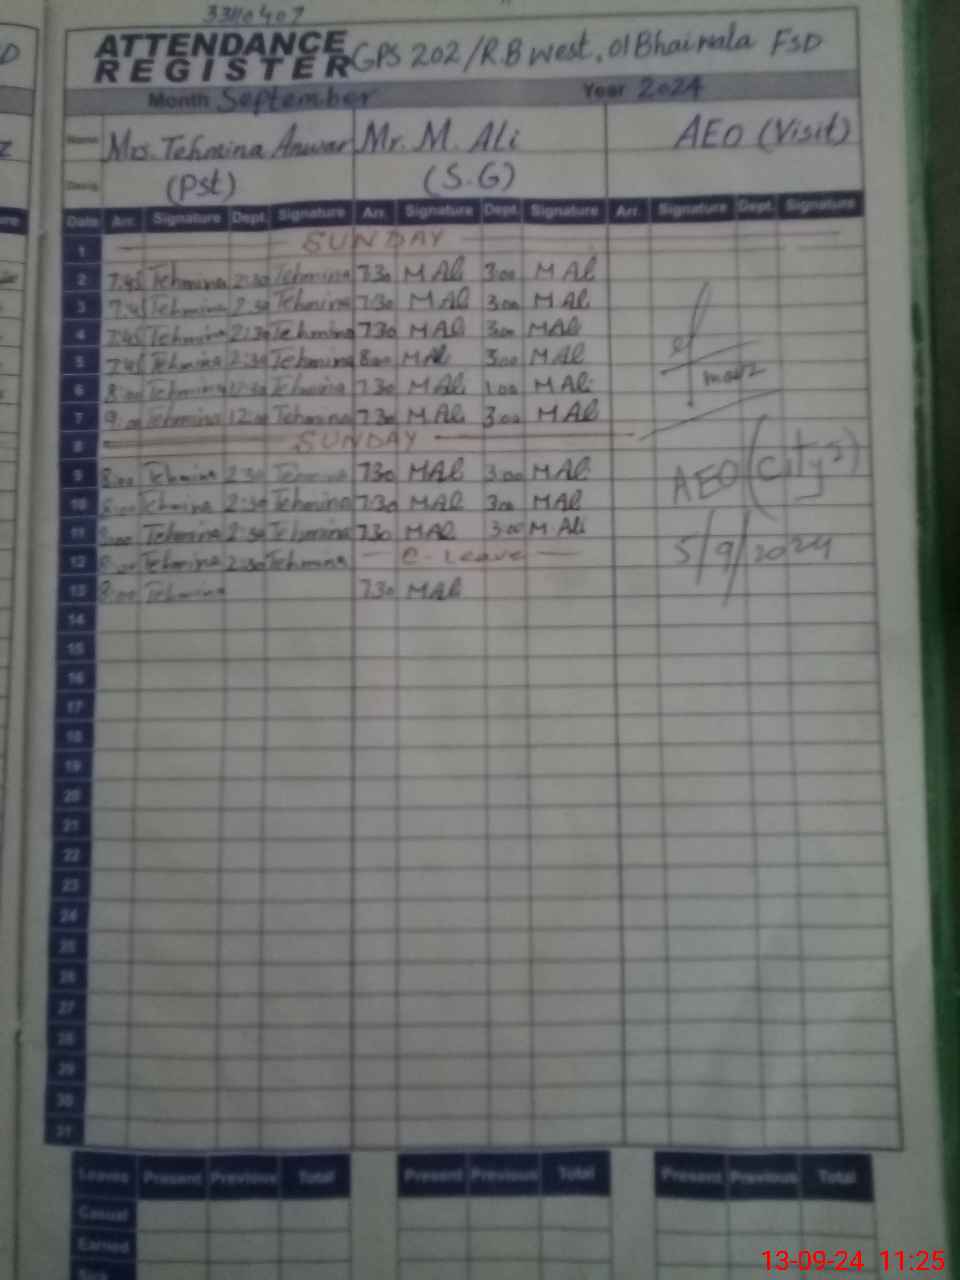 33110407
ATTENDANCE REGISTER GPS 202/RB west, 01 Bhaiwala FSD
Month September Year 2024
Name Mrs. Tehmina Anwar Mr. M. Ali AEO (Visit)
Desig. (Pst) (S.G)
Date Arr. Signature Dept. Signature Arr. Signature Dept. Signature Arr. Signature Dept. Signature
1 SUNDAY
2 7.45 Tehmina 2:30 Tehmina 7.30 M Ali 3.00 M Ali
3 7.45 Tehmina 2:30 Tehmina 7.30 M Ali 3.00 M Ali
4 7.45 Tehmina 2:30 Tehmina 7.30 M Ali 3.00 M Ali
5 7.45 Tehmina 2:30 Tehmina 8.00 M Ali 3.00 M Ali
6 8:00 Tehmina Tehmina 7.30 M Ali 1.00 M Ali
7 9:00 Tehmina 12:00 Tehmina 7.30 M Ali 3.00 M Ali
8 SUNDAY
9 8:00 Tehmina 2:30 Tehmina 7.30 M Ali 3.00 M Ali
AEO (City 2)
10 8:00 Tehmina 2:30 Tehmina 7.30 M Ali 3.00 M Ali
11 8:00 Tehmina 2:30 Tehmina 7.30 M Ali 3.00 M Ali
5/9/2024
12 8:00 Tehmina 2:30 Tehmina C-Leave
13 8:00 Tehmina 7.30 M Ali
14
15
16
17
18
19
20
21
22
23
24
25
26
27
28
29
30
31
Leaves Present Previous Total Present Previous Total Present Previous Total
Casual
Earned
13-09-24 11:25